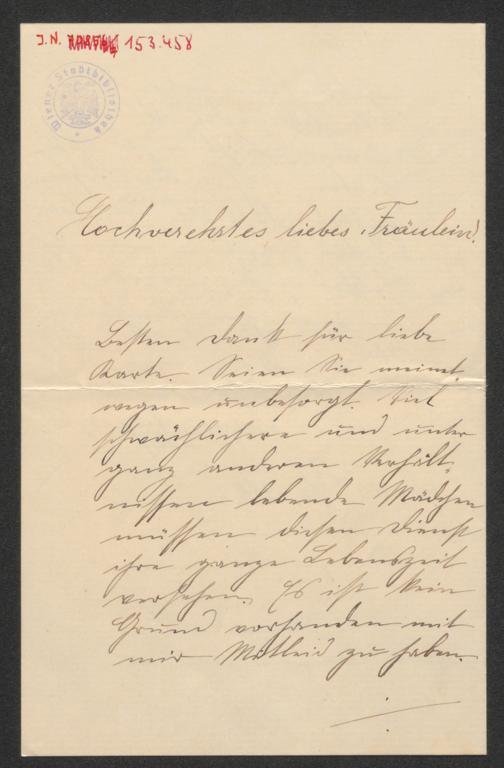 J.N. 153.458
Wiener Stadtbibliothek
Hochverehrtes liebes Fräulein!
Besten Dank für liebe
Karte. Seien Sie meinet-
wegen unbesorgt. Viel
schwächlichere und unter
ganz anderen Verhält-
nissen lebende Mädchen
müssen diesen Dienst
ihre ganze Lebenszeit
versehen. Es ist kein
Grund vorhanden mit
mir Mitleid zu haben.